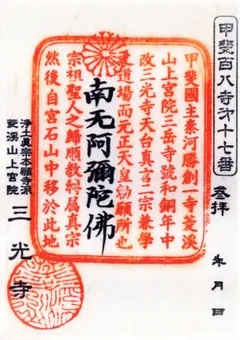 甲斐百八寺㐧十七番
参拝
年 月 日
甲斐國主秦河勝創一寺菱溪
山上宮院三岳寺號和銅年中
改三光寺天台真言二宗兼學
道場而元正天皇勅願所也
南无阿彌陀佛
宗祖聖人之歸順教轉属真宗
然後自宮石山中移於此地
浄土真宗本願寺派
菱溪山上宮院
三光寺